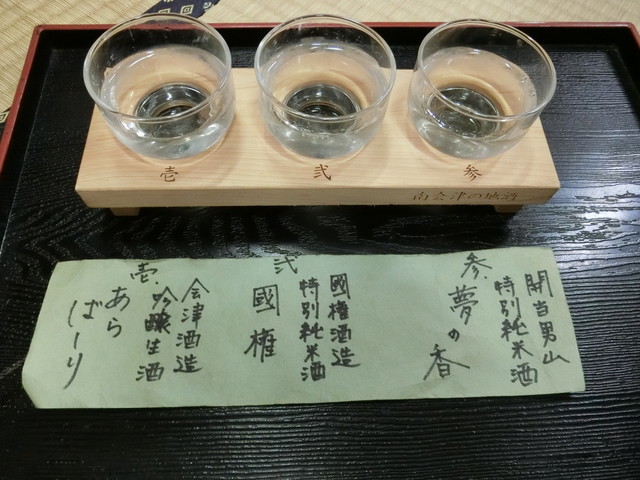 壱
弐
参
南会津の地酒
参.夢の香
開当男山
特別純米酒
弐
國権
國権酒造
特別純米酒
壱.
あら
ばしり
会津酒造
吟醸生酒